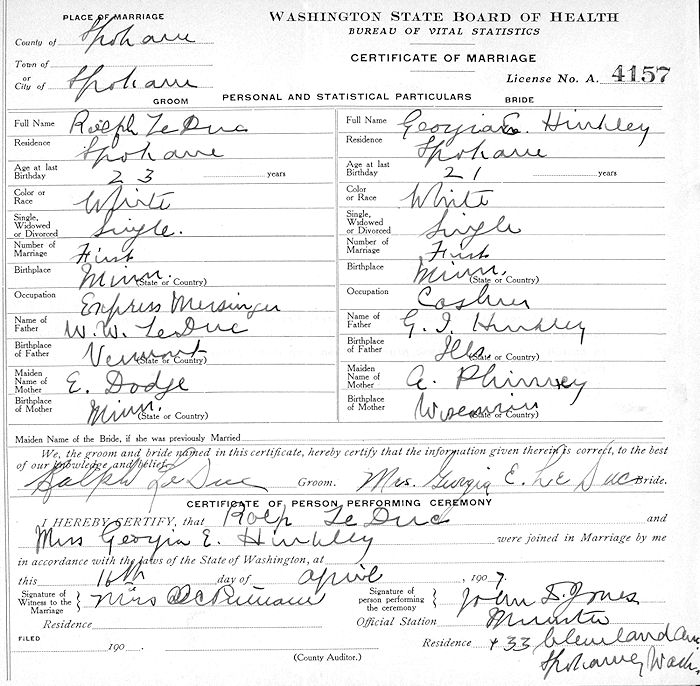 PLACE OF MARRIAGE
County of Spokane
Town of
or
City of Spokane
WASHINGTON STATE BOARD OF HEALTH
BUREAU OF VITAL STATISTICS
CERTIFICATE OF MARRIAGE
License No. A. 4157
PERSONAL AND STATISTICAL PARTICULARS
GROOM
BRIDE
Full Name Ralph Le Duc
Residence Spokane
Age at last Birthday 23 years
Color or Race White
Single, Widowed or Divorced Single.
Number of Marriage First
Birthplace Minn. (State or Country)
Occupation Express Messinger
Name of Father W. W. Le Duc
Birthplace of Father Vermont (State or Country)
Maiden Name of Mother E. Dodge
Birthplace of Mother Minn. (State or Country)
Full Name Georgia E. Hinkley
Residence Spokane
Age at last Birthday 21 years
Color or Race White
Single, Widowed or Divorced Single
Number of Marriage First
Birthplace Minn. (State or Country)
Occupation Cashier
Name of Father G. I. Hinkley
Birthplace of Father Ills. (State or Country)
Maiden Name of Mother A. Phinney
Birthplace of Mother Wisconsin (State or Country)
Maiden Name of the Bride, if she was previously Married
We, the groom and bride named in this certificate, hereby certify that the information given therein is correct, to the best
of our knowledge and belief.
Ralph Le Duc Groom. Mrs. Georgia E. Le Duc Bride.
CERTIFICATE OF PERSON PERFORMING CEREMONY
I HEREBY CERTIFY, that Ralp Le Duc and
Miss Georgia E. Hinkley were joined in Marriage by me
in accordance with the laws of the State of Washington, at
this 16th day of April, 1907.
Signature of Witness to the Marriage } Mrs
Residence
Signature of person performing the ceremony } John D. Jones
Official Station Minister
Residence 433 Cleveland Ave.
Spokane, Wash.
FILED
190 .
(County Auditor.)